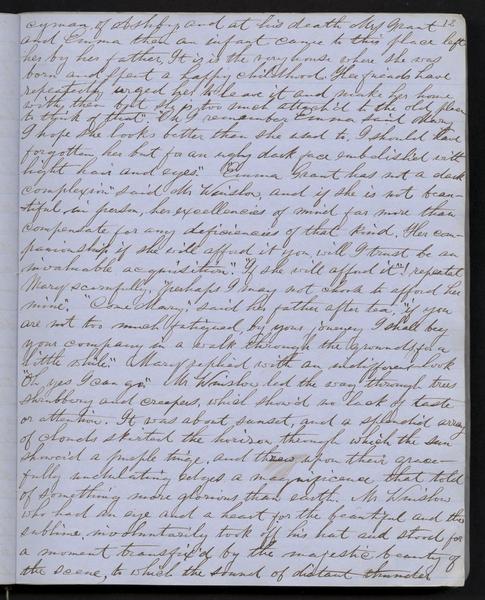 cyman, of and at his death Mrs Grant 12
and Emma then an infant came to this place left
her by her father. It is the very house where she was
born and spent a happy childhood. Her friends have
repeatedly urged her to leave it and make her home
with them but she is too much attach'd to the old place
to think of that." "Oh I remember Emma said Mary
I hope she looks better than she used to. I should have
forgotten her but for an ugly dark face embelished with
light hair and eyes." "Emma Grant has not a dark
complexion" said Mr Winslow, and if she is not beau-
tiful in person, her excellencies of mind far more than
compensate for any deficiencies of that kind. Her com-
panionship if she will afford it you will I trust be an
invaluable acquisition." "If she will afford it"! repeated
Mary scornfully, "Perhaps I may not chose to afford her
mine". "Come Mary," said her father after tea, "if you
are not too much fatigued by your journey I shall beg
your company in a walk through the grounds for a
little while" Mary replied with an indifferent look
"Oh yes I can go" Mr Winslow led the way through trees
shrubbery and creepers, which show'd no lack of taste
or attention. It was about sunset, and a splendid array
of clouds skirted the horizon through which the sun
showed a purple tinge, and threw upon their grace-
fully undulating edges a magnificence that told
of something more glorious than earth. Mr Winslow
who had an eye and a heart for the beautiful and the
sublime involuntarily took off his hat and stood for
a moment transfixed by the majestic beauty of
the scene, to which the sound of distant thunder